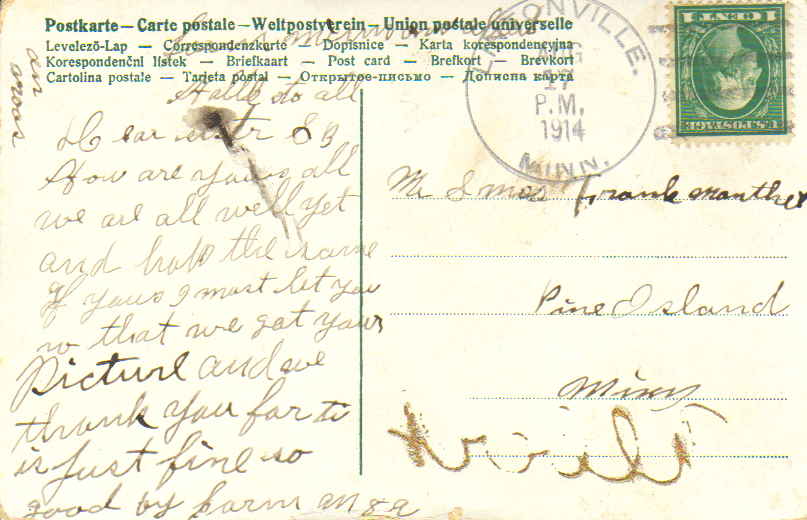 Postkarte — Carte postale — Weltpostverein — Union postale universelle
Levelező-Lap — Correspondenzkarte — Dopisnice — Karta korespondencyjna
Korespondenční lístek — Briefkaart — Post card — Brefkort — Brevkort
Cartolina postale — Tarjeta postal — Открытое-письмо — Дописна карта
Hallo to all
Dear
How are yous all
we are all well yet
and hop the same
of yous I must let you
no that we got your
Picture and we
thank you for it
is just fine so
good by
an
LARSONVILLE.
17
P.M.
1914
MINN.
1 CENT 1
U.S.POSTAGE
Mr & mrs Frank manthei
Pine Island
Minn